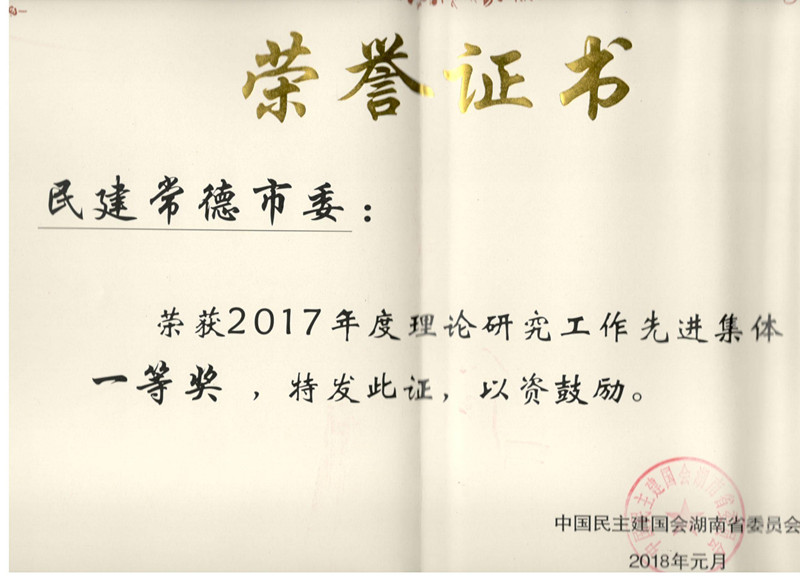 荣誉证书
民建常德市委：
荣获2017年度理论研究工作先进集体
一等奖，特发此证，以资鼓励。
中国民主建国会湖南省委员会
2018年元月